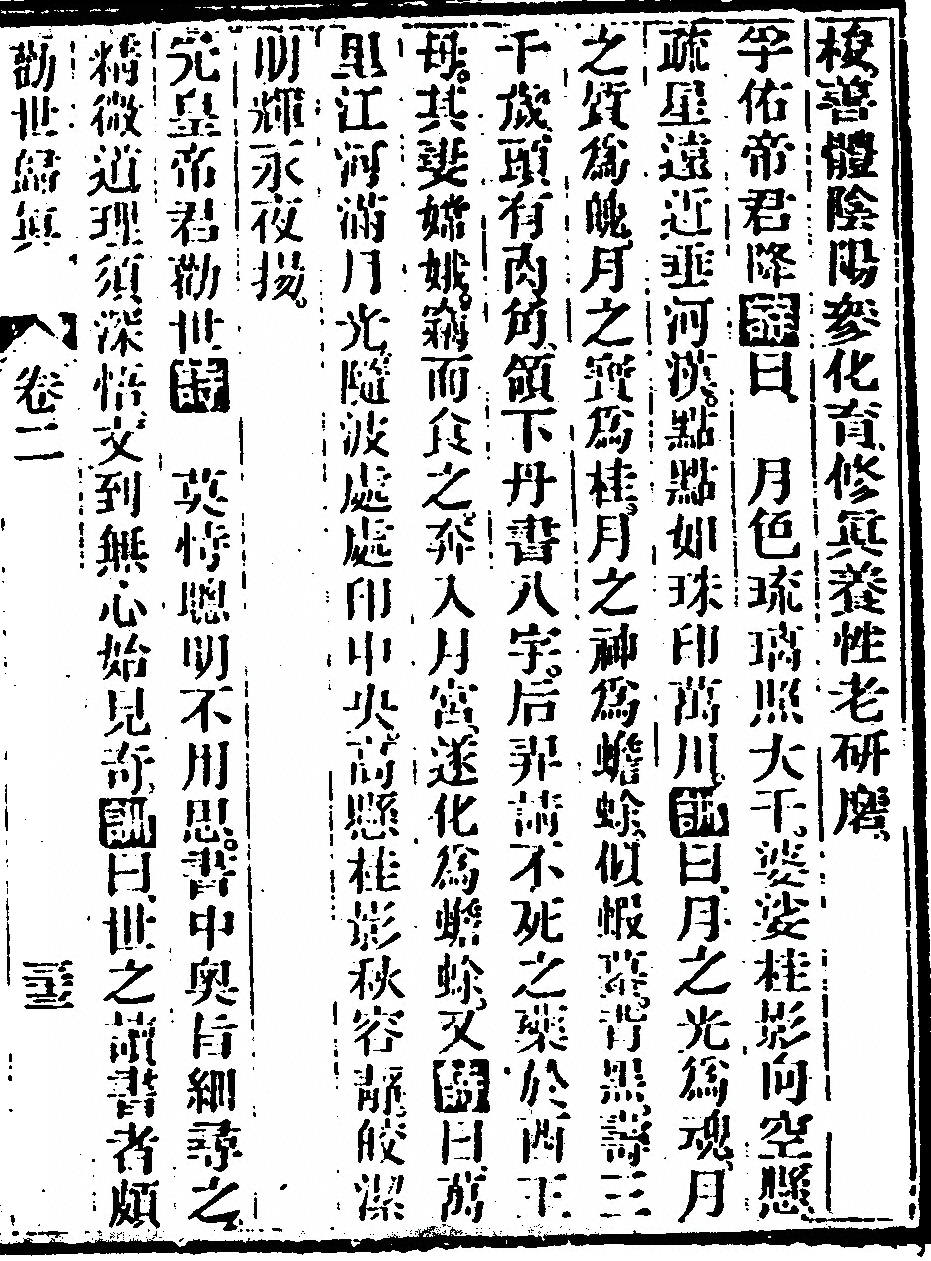 梭善體陰陽參化育修眞養性老研磨
孚佑帝君降詩曰　月色琉璃照大千婆娑桂影向空懸
疏星遠近垂河漢點點如珠印萬川訓曰月之光爲魂月
之質爲魄月之寶爲桂月之神爲蟾蜍似蝦蟇背黑壽三
千歲頭有肉角頷下丹書八字后羿請不死之藥於西王
母其妻嫦娥竊而食之奔入月宮遂化爲蟾蜍又詩曰萬
里江河滿月光隨波處處印中央高懸桂影秋容靜皎潔
明輝永夜揚
元皇帝君勸世詩　英特聰明不用思書中奧旨細尋之
精微道理須深悟文到無心始見奇訓曰世之讀書者頗
勸世歸眞　卷二　三